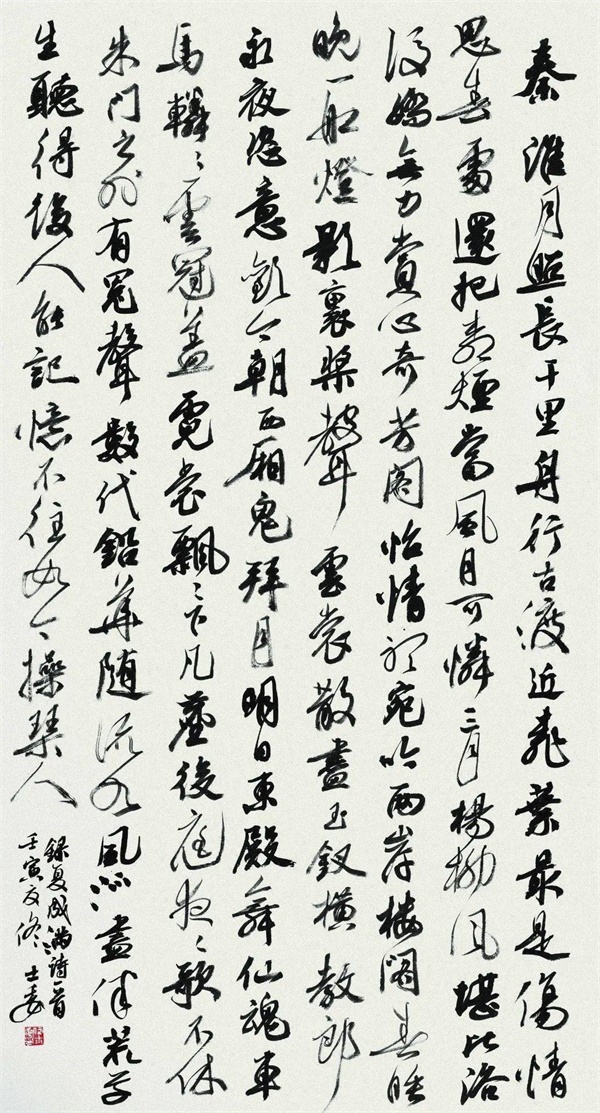 秦淮月照長干里舟行古渡近葉最是傷情
思春還把青煙當風月可憐三月楊柳風堪比浴
後嬌無力賞心奇芳閣怡情聽宛吟兩岸樓閣春睡
晚一船燈影裏槳聲雲裳散盡玉釵橫教郎
永夜恣意歡今朝西廂鬼拜月明日東殿舞仙魂車
馬轔々雲冠蓋霓裳飄々下凡塵後庭夜々歌不休
朱門之外有冤聲數代鉛華隨流水風盡
生聽得後人能記憶不往如今操琴人
錄夏成滿詩一首
壬寅